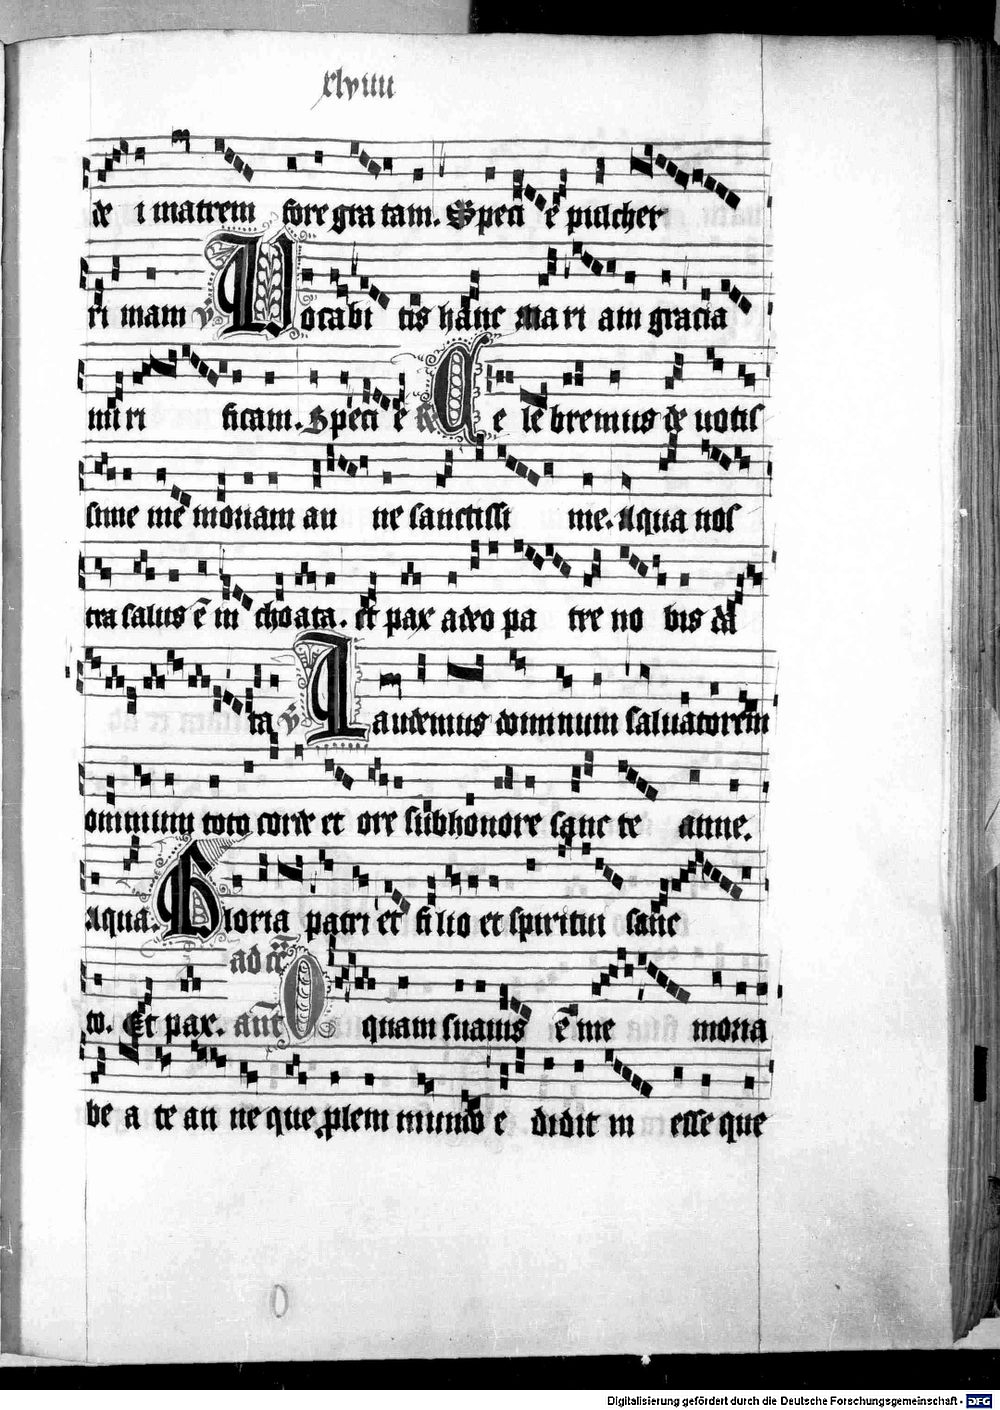 xlviiii
de i matrem fore gra tam. Speci e pulcher
ri mam ℣ Vocabi tis hanc Ma ri am gracia
mi ri ficam. Speci e ℟ Ce le bremus de uotis
sime me moriam an ne sanctissi me. A qua nos
tra salus ē in choata. et pax a deo pa tre no bis da
ta ℣ Laudemus dominum saluatorem
omnium toto corde et ore sub honore sanc te anne.
A qua. Gloria patri et fi lio et spiritui sanc
ad
to. Et pax. O quam suauis ē me moria
be a te an ne que plem mundo e didit in esse que
Digitalisierung gefördert durch die Deutsche Forschungsgemeinschaft - DFG